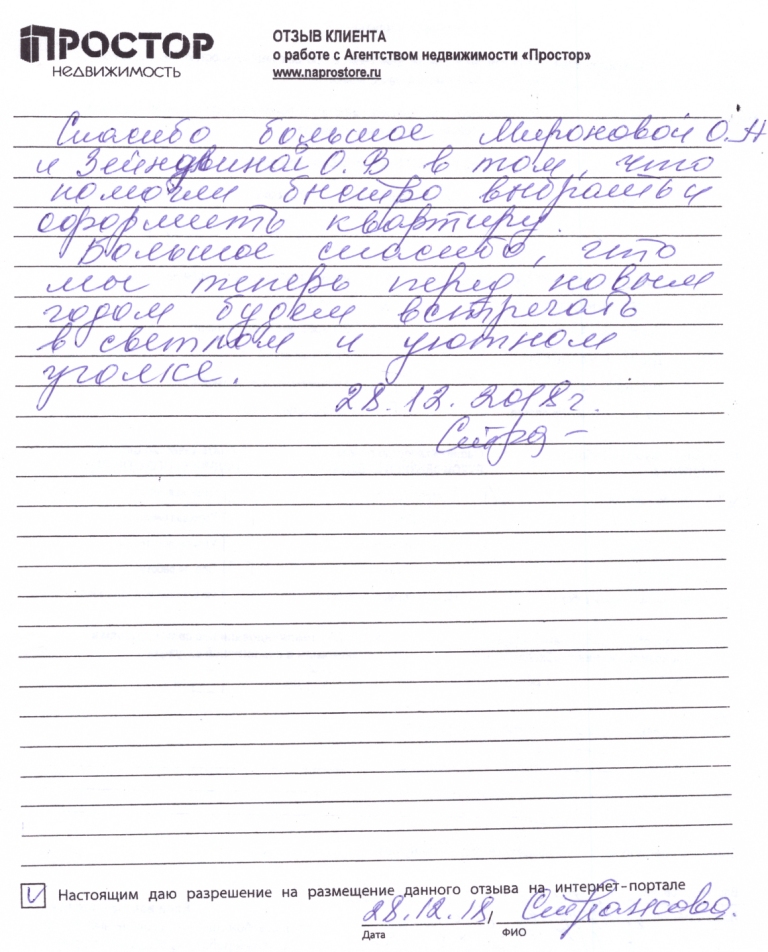 ПРОСТОР
НЕДВИЖИМОСТЬ
ОТЗЫВ КЛИЕНТА
о работе с Агентством недвижимости «Простор»
www.naprostore.ru
Спасибо большое Мироновой О.А
и О.В в том, что
помогли быстро выбрать и
оформить квартиру.
Большое спасибо, что
мы теперь перед новым
годом будем встречать
в светлом и уютном
уголке.
28.12.2018г.
Настоящим даю разрешение на размещение данного отзыва на интернет-портале
28.12.18, 
Дата
ФИО